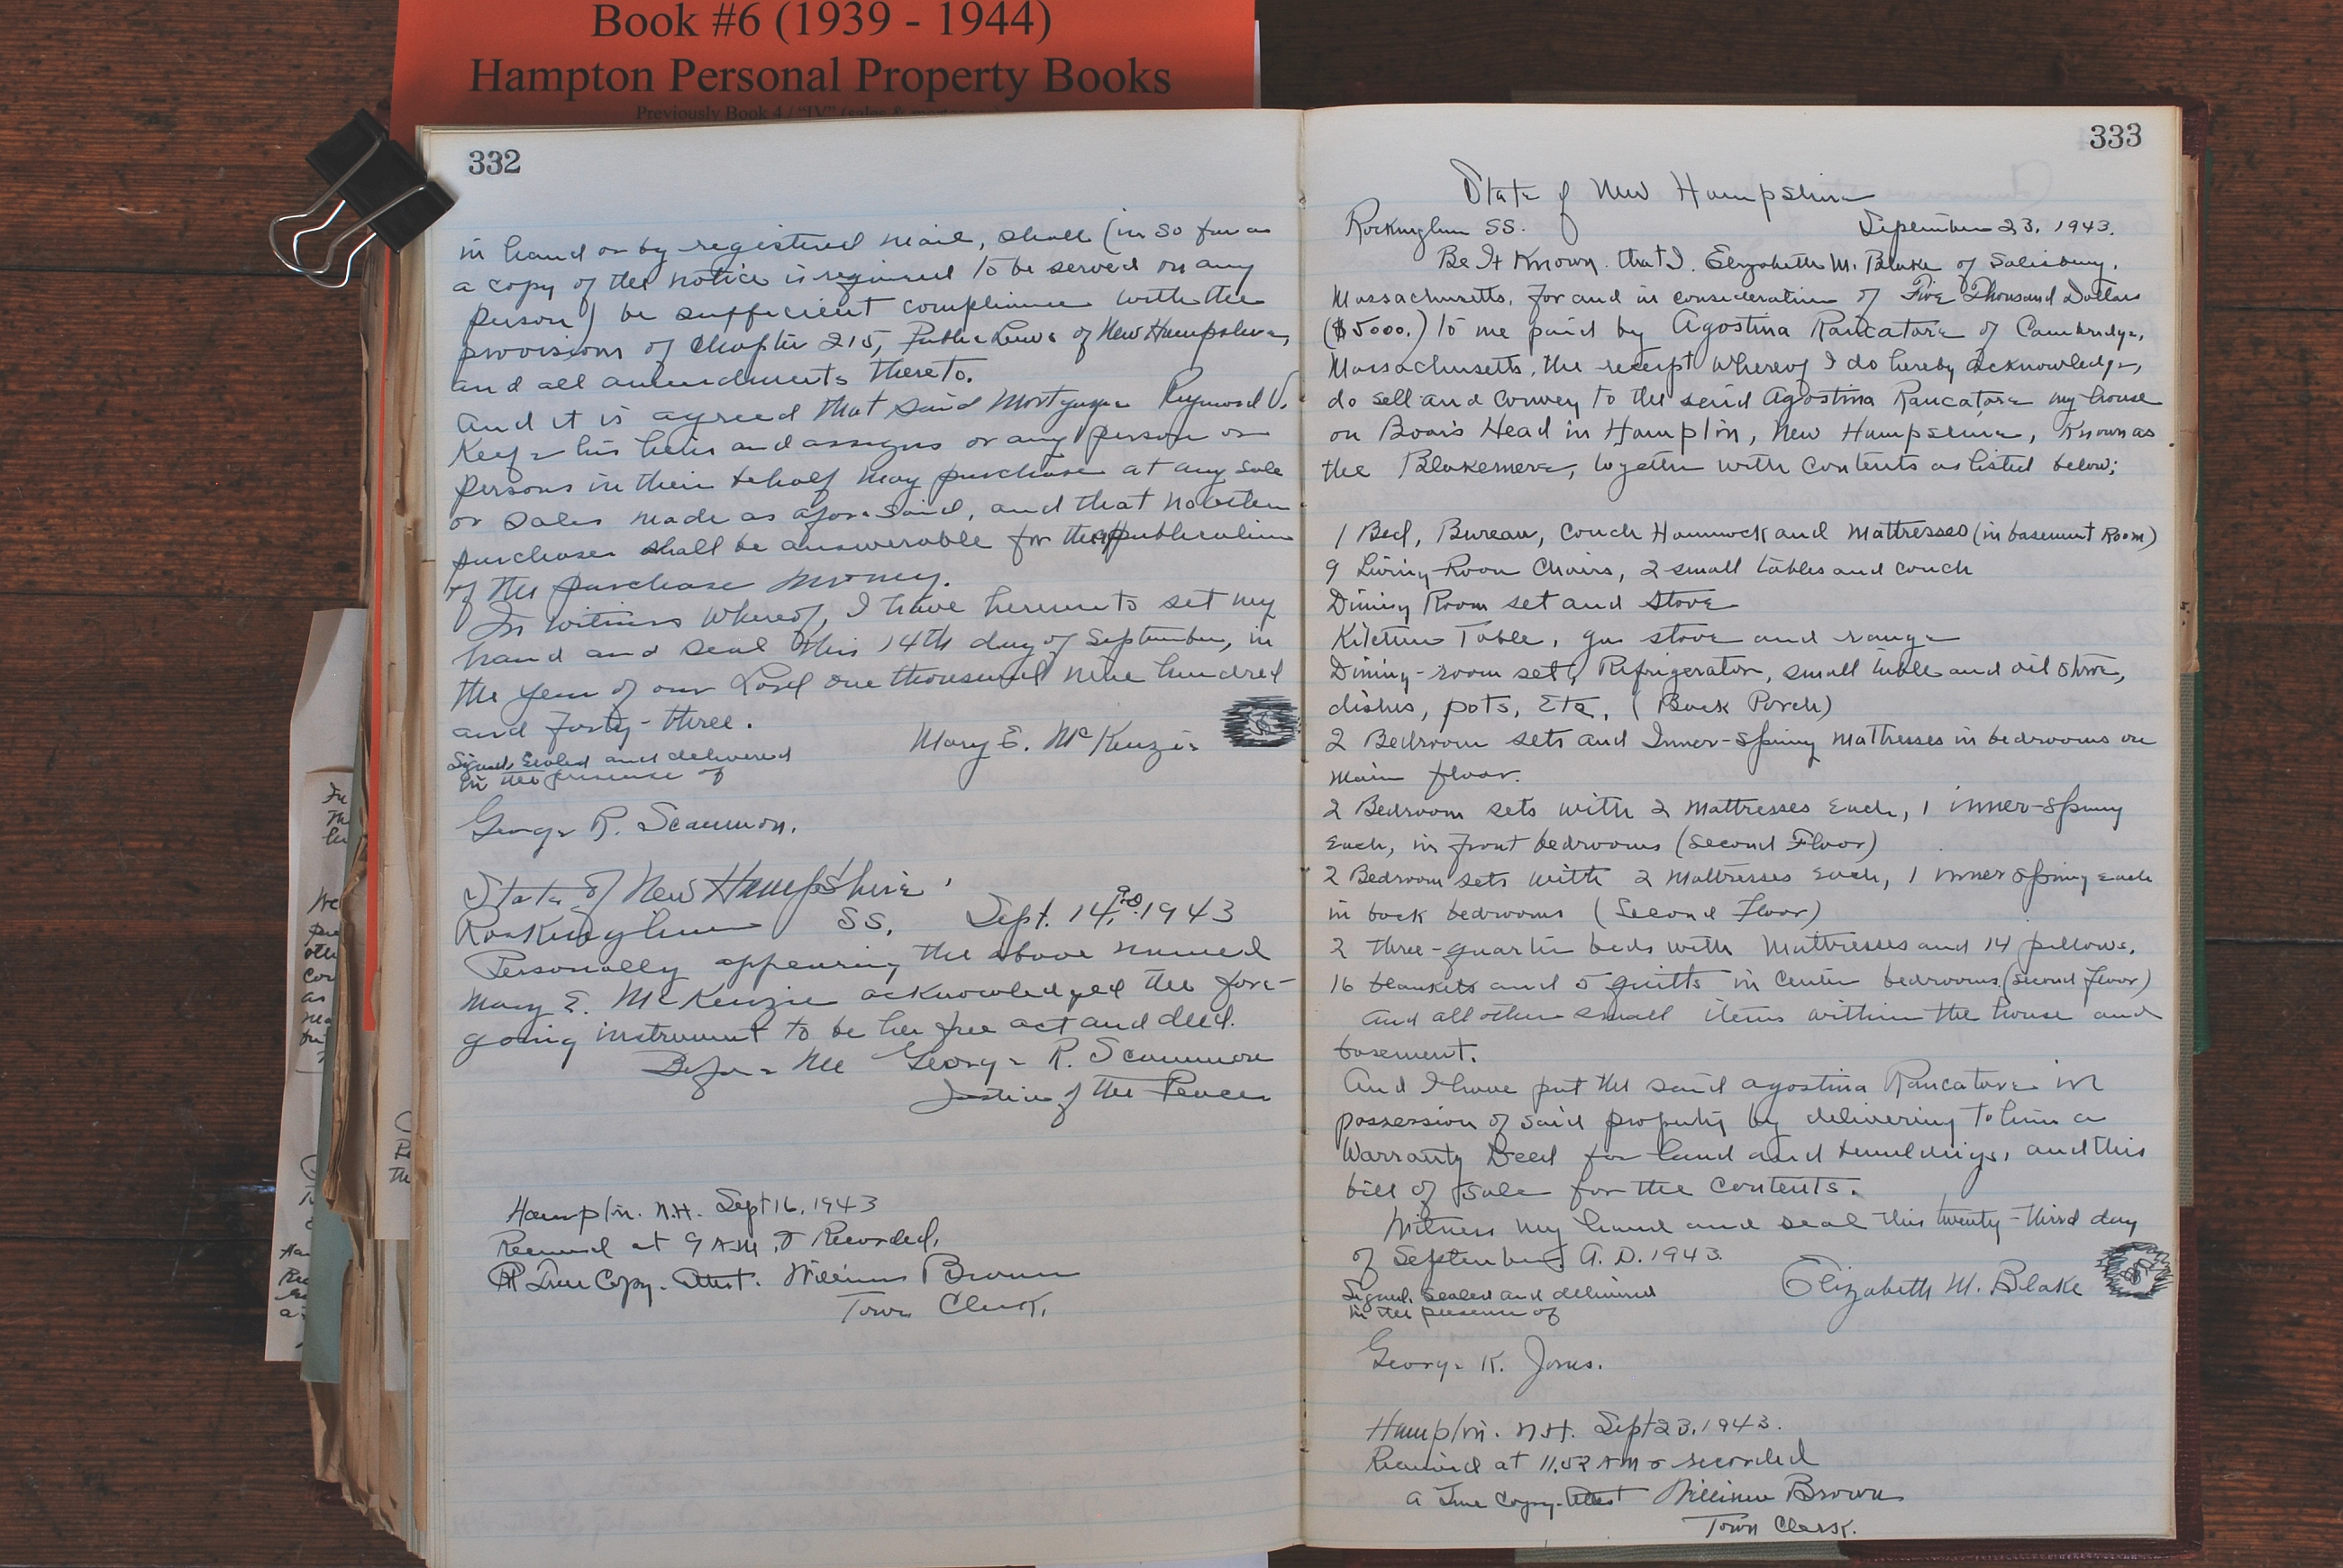 Book #6 (1939 - 1944)
Hampton Personal Property Books
Previously Book 4 / "IV" (sales & mortgages)
332
in hand or by registered mail, shall (in so far as
a copy of the notice is required to be served on any
person) be sufficient compliance with the
provisions of Chapter 215, Public Laws of New Hampshire,
and all amendments thereto.
And it is agreed that said Mortgagee Raymond V.
Keefe his heirs and assigns or any person or
persons in their behalf may purchase at any sale
or sales made as aforesaid, and that no other
purchaser shall be answerable for the application
of the purchase money.
In witness whereof, I have hereunto set my
hand and seal this 14th day of September, in
the year of our Lord one thousand nine hundred
and forty-three.
Signed, Sealed and delivered
in the presense of
Mary E. McKenzie
George R. Scammon.
State of New Hampshire
Rockingham SS. Sept. 14, 1943
Personally appearing the above named
Mary E. McKenzie acknowledged the fore-
going instrument to be her free act and deed.
Before Me George R. Scammon
Justice of the Peace
Hampton. N.H. Sept 16, 1943
Received at 9 AM, & Recorded,
A True Copy. Attest. William Brown
Town Clerk.
333
State of New Hampshire
Rockingham SS. September 23, 1943.
Be It Known that I. Elizabeth M. Blake of Salisbury,
Massachusetts, for and in consideration of Five Thousand Dollars
($5000.) to me paid by Agostina Rancatore of Cambridge,
Massachusetts, the receipt whereof I do hereby acknowledge,
do sell and convey to the said Agostina Rancatore my house
on Boar's Head in Hampton, New Hampshire, known as
the Blakemere, together with contents as listed below;
1 Bed, Bureau, Couch Hammock and Mattresses (in basement Room)
9 Living-Room Chairs, 2 small tables and couch
Dining Room set and stove
Kitchen Table, gas stove and range
Dining-room set, Refrigerator, small table and oil stove,
dishes, pots, Etc, (Back Porch)
2 Bedroom sets and Inner-Spring Mattresses in bedrooms on
main floor.
2 Bedroom sets with 2 Mattresses Each, 1 inner-spring
Each, in front bedrooms (Second Floor)
2 Bedroom sets with 2 Mattresses Each, 1 inner spring each
in back bedrooms (Second Floor)
2 three-quarter beds with Mattresses and 14 pillows.
16 blankets and 5 quilts in center bedrooms (Second floor)
And all other small items within the house and
basement.
And I have put the said Agostina Rancatore in
possession of said property by delivering to him a
Warranty Deed for land and buildings, and this
bill of sale for the contents.
Witness my hand and seal this twenty-third day
of September A. D. 1943.
Signed, Sealed and delivered
in the presence of
Elizabeth M. Blake
George K. Jones.
Hampton. N.H. Sept 23, 1943.
Received at AM & recorded
A True Copy-Attest William Brown
Town Clerk.